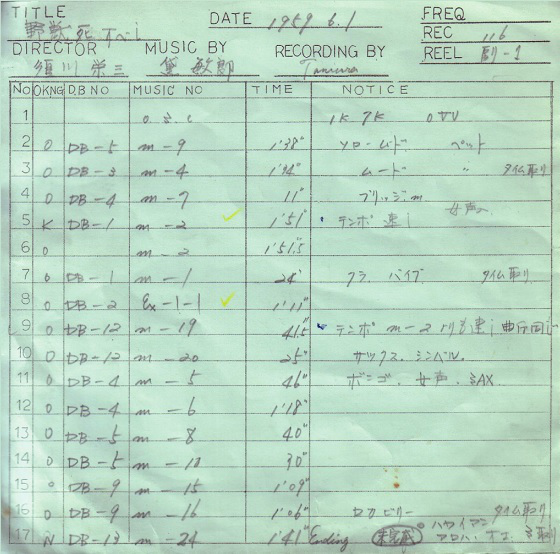 TITLE 野獣死すべし DATE 1959.6.1 FREQ
REC
DIRECTOR 須川栄三 MUSIC BY 黛敏郎 RECORDING BY REEL
No OKNG D.B NO MUSIC NO TIME NOTICE
1 1K 7K
2 O DB-5 m-9 1'38" ソロ ムード ペット
3 O DB-3 m-4 ムード 〃 タイム取り
4 O DB-4 m-7 11" ブリッジm
5 K DB-1 m-2 1'51" テンポ速い 女声
6 O m-2 1'51.5"
7 O DB-1 m-1 24" バイブ タイム取り
8 O DB-2 Ex-1-1 1'11"
9 O DB-12 m-19 テンポ m-2よりも速い 曲同じ
10 O DB-12 m-20 25" サックス. シンバル.
11 O DB-4 m-5 46" ボンゴ. 女声. SAX
12 O DB-4 m-6 1'18"
13 O DB-5 m-8 40"
14 O DB-5 m-10 30"
15 O DB-9 m-15 1'09"
16 O DB-9 m-16 1'06" ロカビリー タイム取り
17 N DB-13 m-24 1'41" Ending 未完成 ハワイアン アロハ.オエ